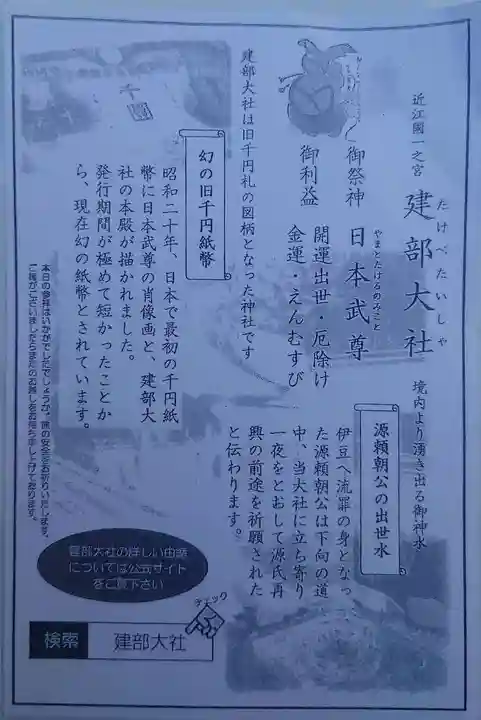 近江國一之宮
建部大社
たけべたいしゃ
御祭神 日本武尊
やまとたけるのみこと
御利益 開運出世・厄除け
金運・えんむすび
建部大社は旧千円札の図柄となった神社です
幻の旧千円紙幣
昭和二十年、日本で最初の千円紙
幣に日本武尊の肖像画と、建部大
社の本殿が描かれました。
発行期間が極めて短かったことか
ら、現在幻の紙幣とされています。
境内より湧き出る御神水
源頼朝公の出世水
伊豆へ流罪の身となっ
た源頼朝公は下向の道
中、当大社に立ち寄り
一夜をとおして源氏再
興の前途を祈願された
と伝わります。
本日の参拝はいかがでしたでしょうか。旅の安全をお祈りいたします。
ご縁がございましたらまたのお越しをお待ち申し上げております。
建部大社の詳しい由緒
については公式サイト
をご覧下さい
チェック
検索 建部大社